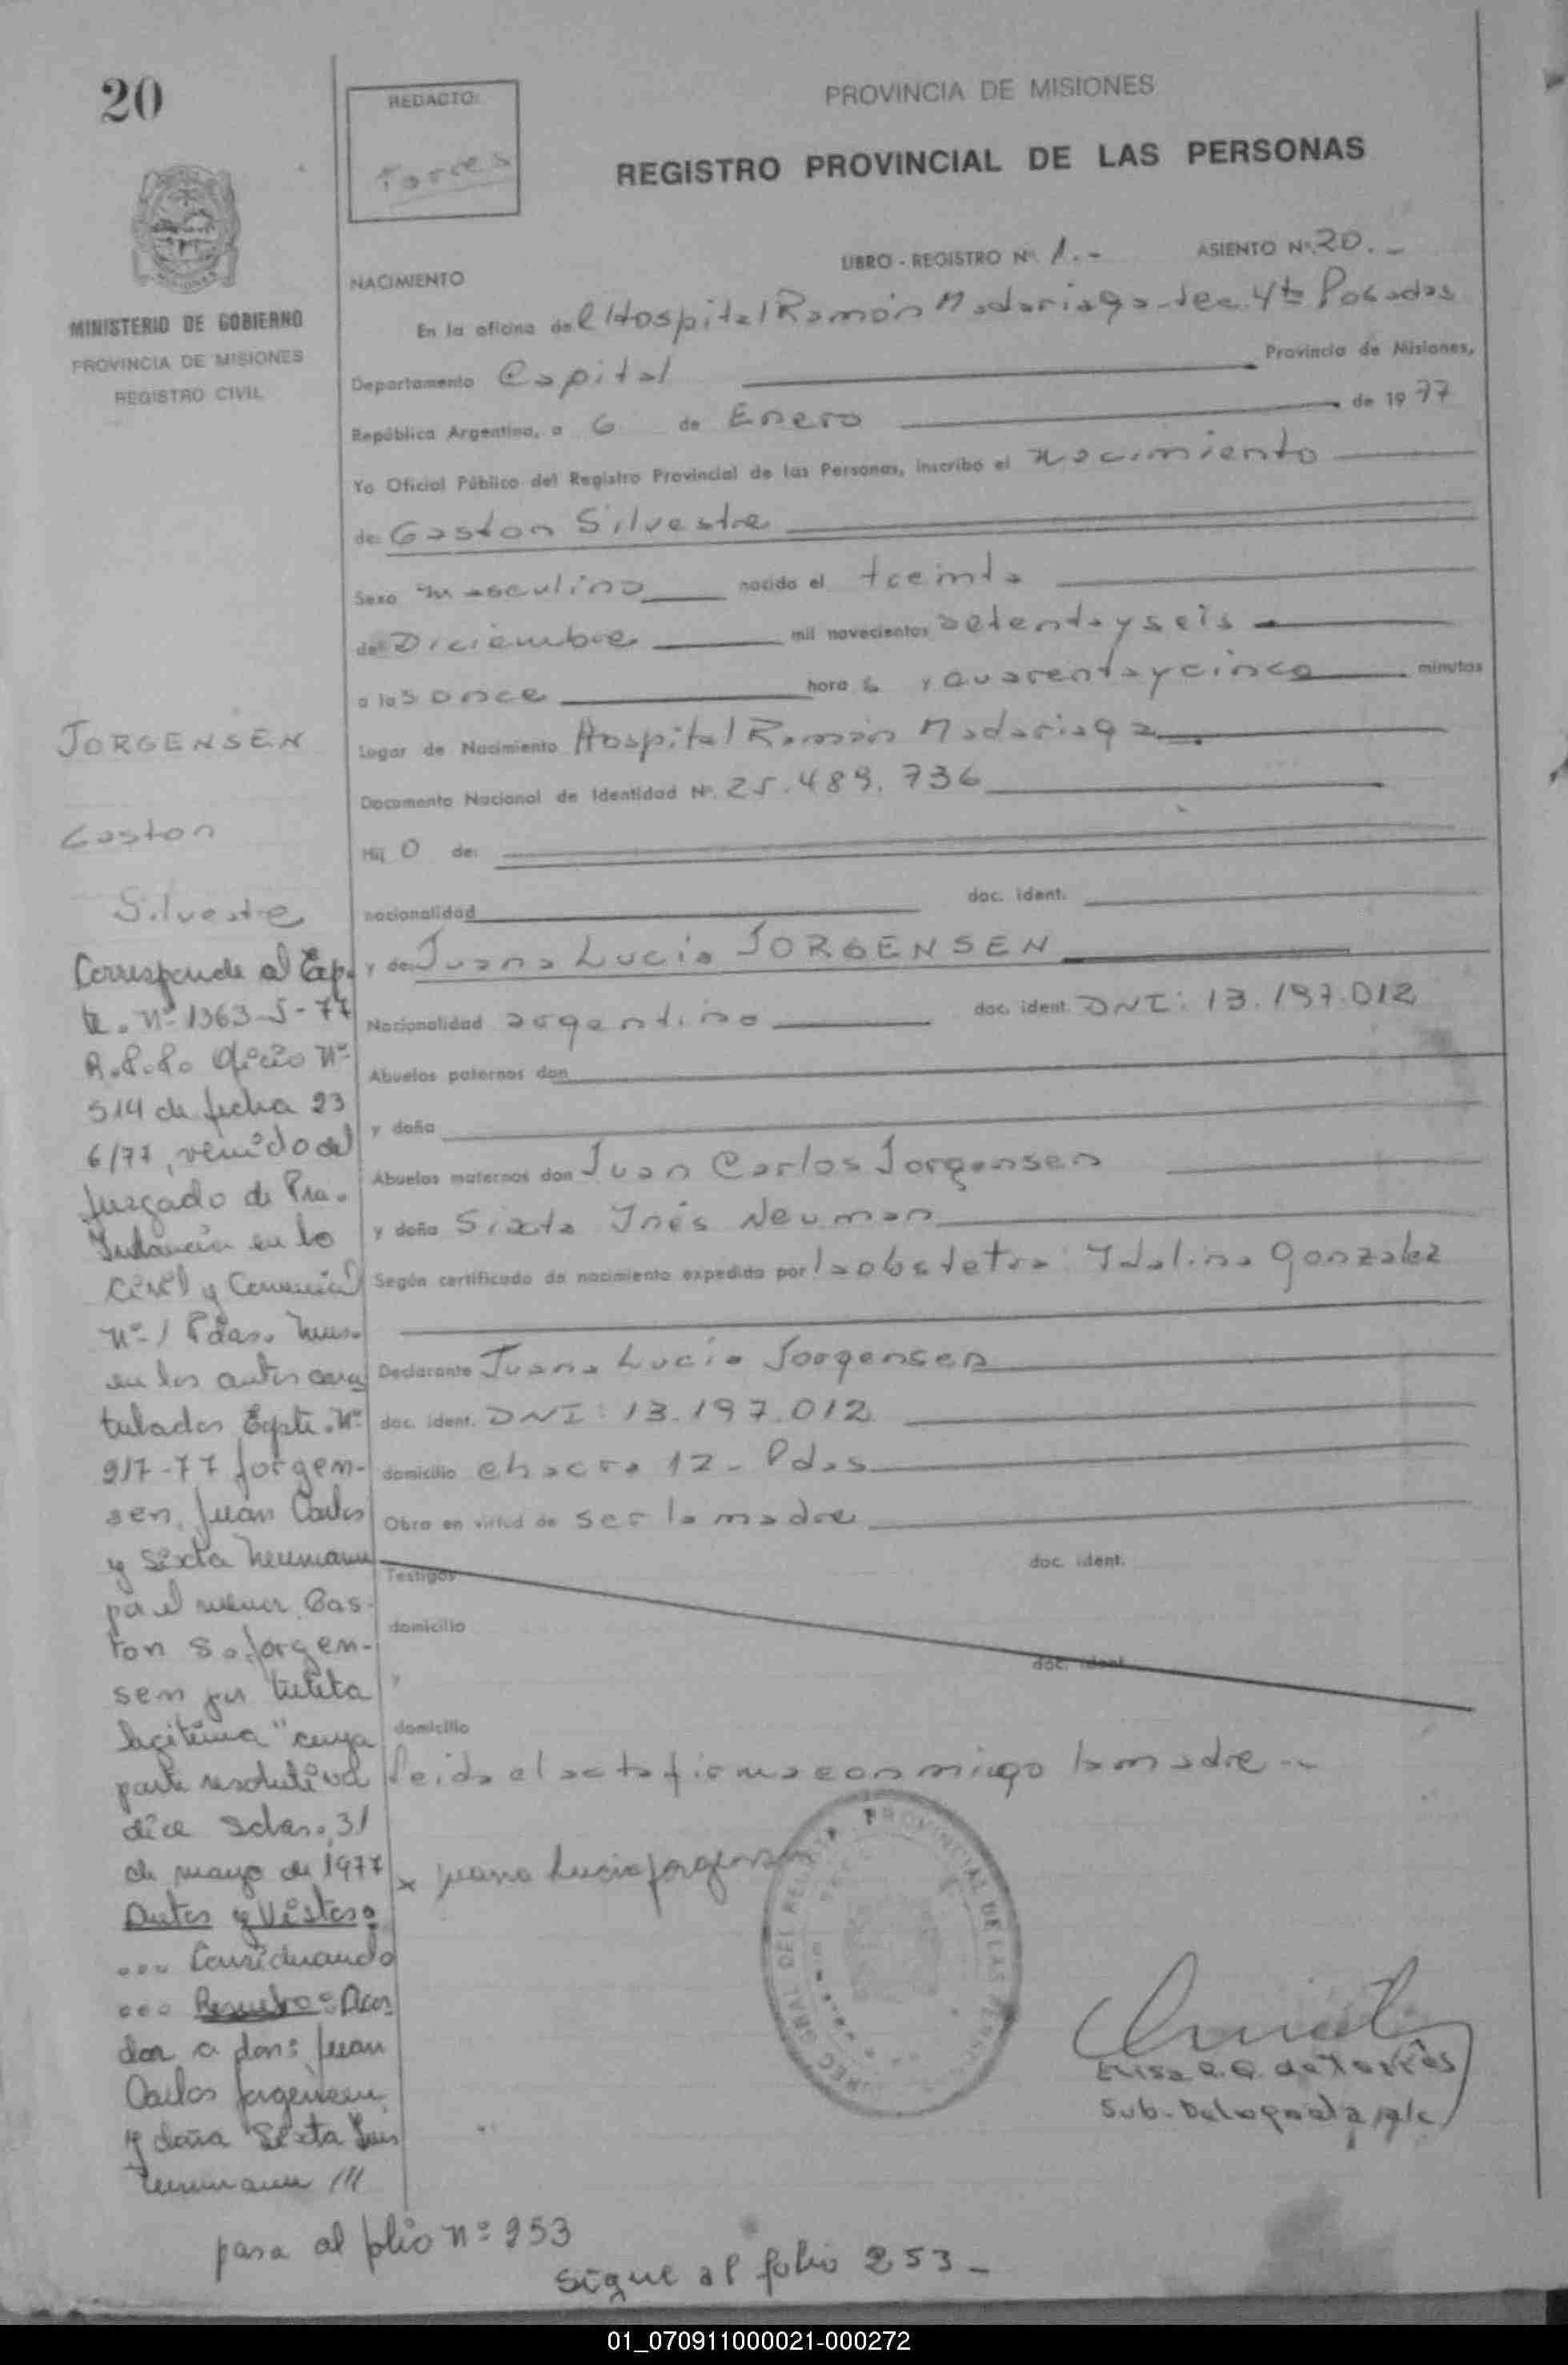 20
REDACTO:
Torres
PROVINCIA DE MISIONES
REGISTRO PROVINCIAL DE LAS PERSONAS
MINISTERIO DE GOBIERNO
PROVINCIA DE MISIONES
REGISTRO CIVIL
LIBRO - REGISTRO Nº 1.- ASIENTO Nº 20.-
NACIMIENTO
En la oficina del Hospital Ramón Madariaga - Sec. 4ta Posadas
Departamento Capital Provincia de Misiones,
República Argentina, a 6 de Enero de 1977
Yo Oficial Público del Registro Provincial de las Personas, inscribo el nacimiento
de: Gaston Silvestre
Sexo masculino nacido el treinta
de Diciembre mil novecientos setenta y seis
a las once hora s y cuarenta y cinco minutos
Lugar de Nacimiento Hospital Ramón Madariaga
Documento Nacional de Identidad Nº. 25.489.736
Hij o de:
nacionalidad doc. ident.
y de: Juana Lucia JORGENSEN
Nacionalidad argentina doc. ident. DNI: 13.197.012
Abuelos paternos don
y doña
Abuelos maternos don Juan Carlos Jorgensen
y doña Sixta Inés Neuman
Según certificado de nacimiento expedido por la obstetra: Idalina Gonzalez
Declarante Juana Lucia Jorgensen
doc. ident. DNI: 13.197.012
domicilio chacra 12 - Pdas
Obra en virtud de ser la madre
Testigos doc. ident.
domicilio
y doc. ident.
domicilio
Leida el acta firma conmigo la madre.-
x Juana Lucia Jorgensen
Elisa de Torres
Sub-Delegada
JORGENSEN
Gaston
Silvestre
Corresponde al Exp.
te. Nº 1363-J-77
R.P.P. Oficio Nº
514 de fecha 23
6/77, venido del
Juzgado de Pra.
Instancia en lo
Civil y Comercial
Nº 1 Pdas. Mnes.
en los autos cara
tulados Expte. Nº
917-77 Jorgen-
sen, Juan Carlos
y Sixta Neumann
por el menor Gas-
ton S. Jorgen-
sen por tutela
legitima" cuya
parte resolutiva
dice Sdas., 31
de mayo de 1977
Autos y Vistos:
... Considerando
... Resuelvo: Acor
dar a don: Juan
Carlos Jorgensen
y doña Sixta Inés
Neumann ///
pasa al folio nº 253
Sigue al folio 253-
01_070911000021-000272